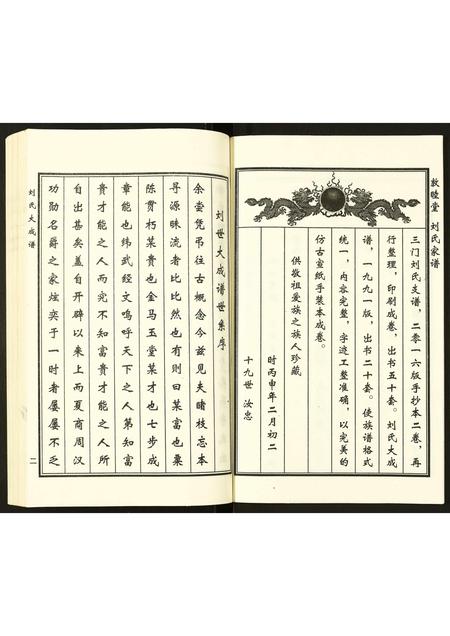 敦睦堂 刘氏家谱
三门刘氏支谱，二零一六版手抄本二卷，再
行整理，印刷成卷，出书五十套。刘氏大成
谱，一九九一版，出书二十套。使族谱格式
统一，内容完整，字迹工整准确，以完美的
仿古宣纸手装本成卷。
供敬祖爱族之族人珍藏
时丙申年二月初二
十九世 汝忠
刘世大成谱世集序
余尝凭吊往古概念今兹见夫睹枝忘本
寻源昧流者比比然也有则曰某富也粟
陈贯朽某贵也金马玉堂某才也七步成
章能也纬武经文呜呼天下之人第知富
贵才能之人而究不知富贵才能之人所
自出甚矣盖自开辟以来上而夏商周汉
功勋名爵之家炫奕于一时者屡屡不乏
刘氏大成谱
二